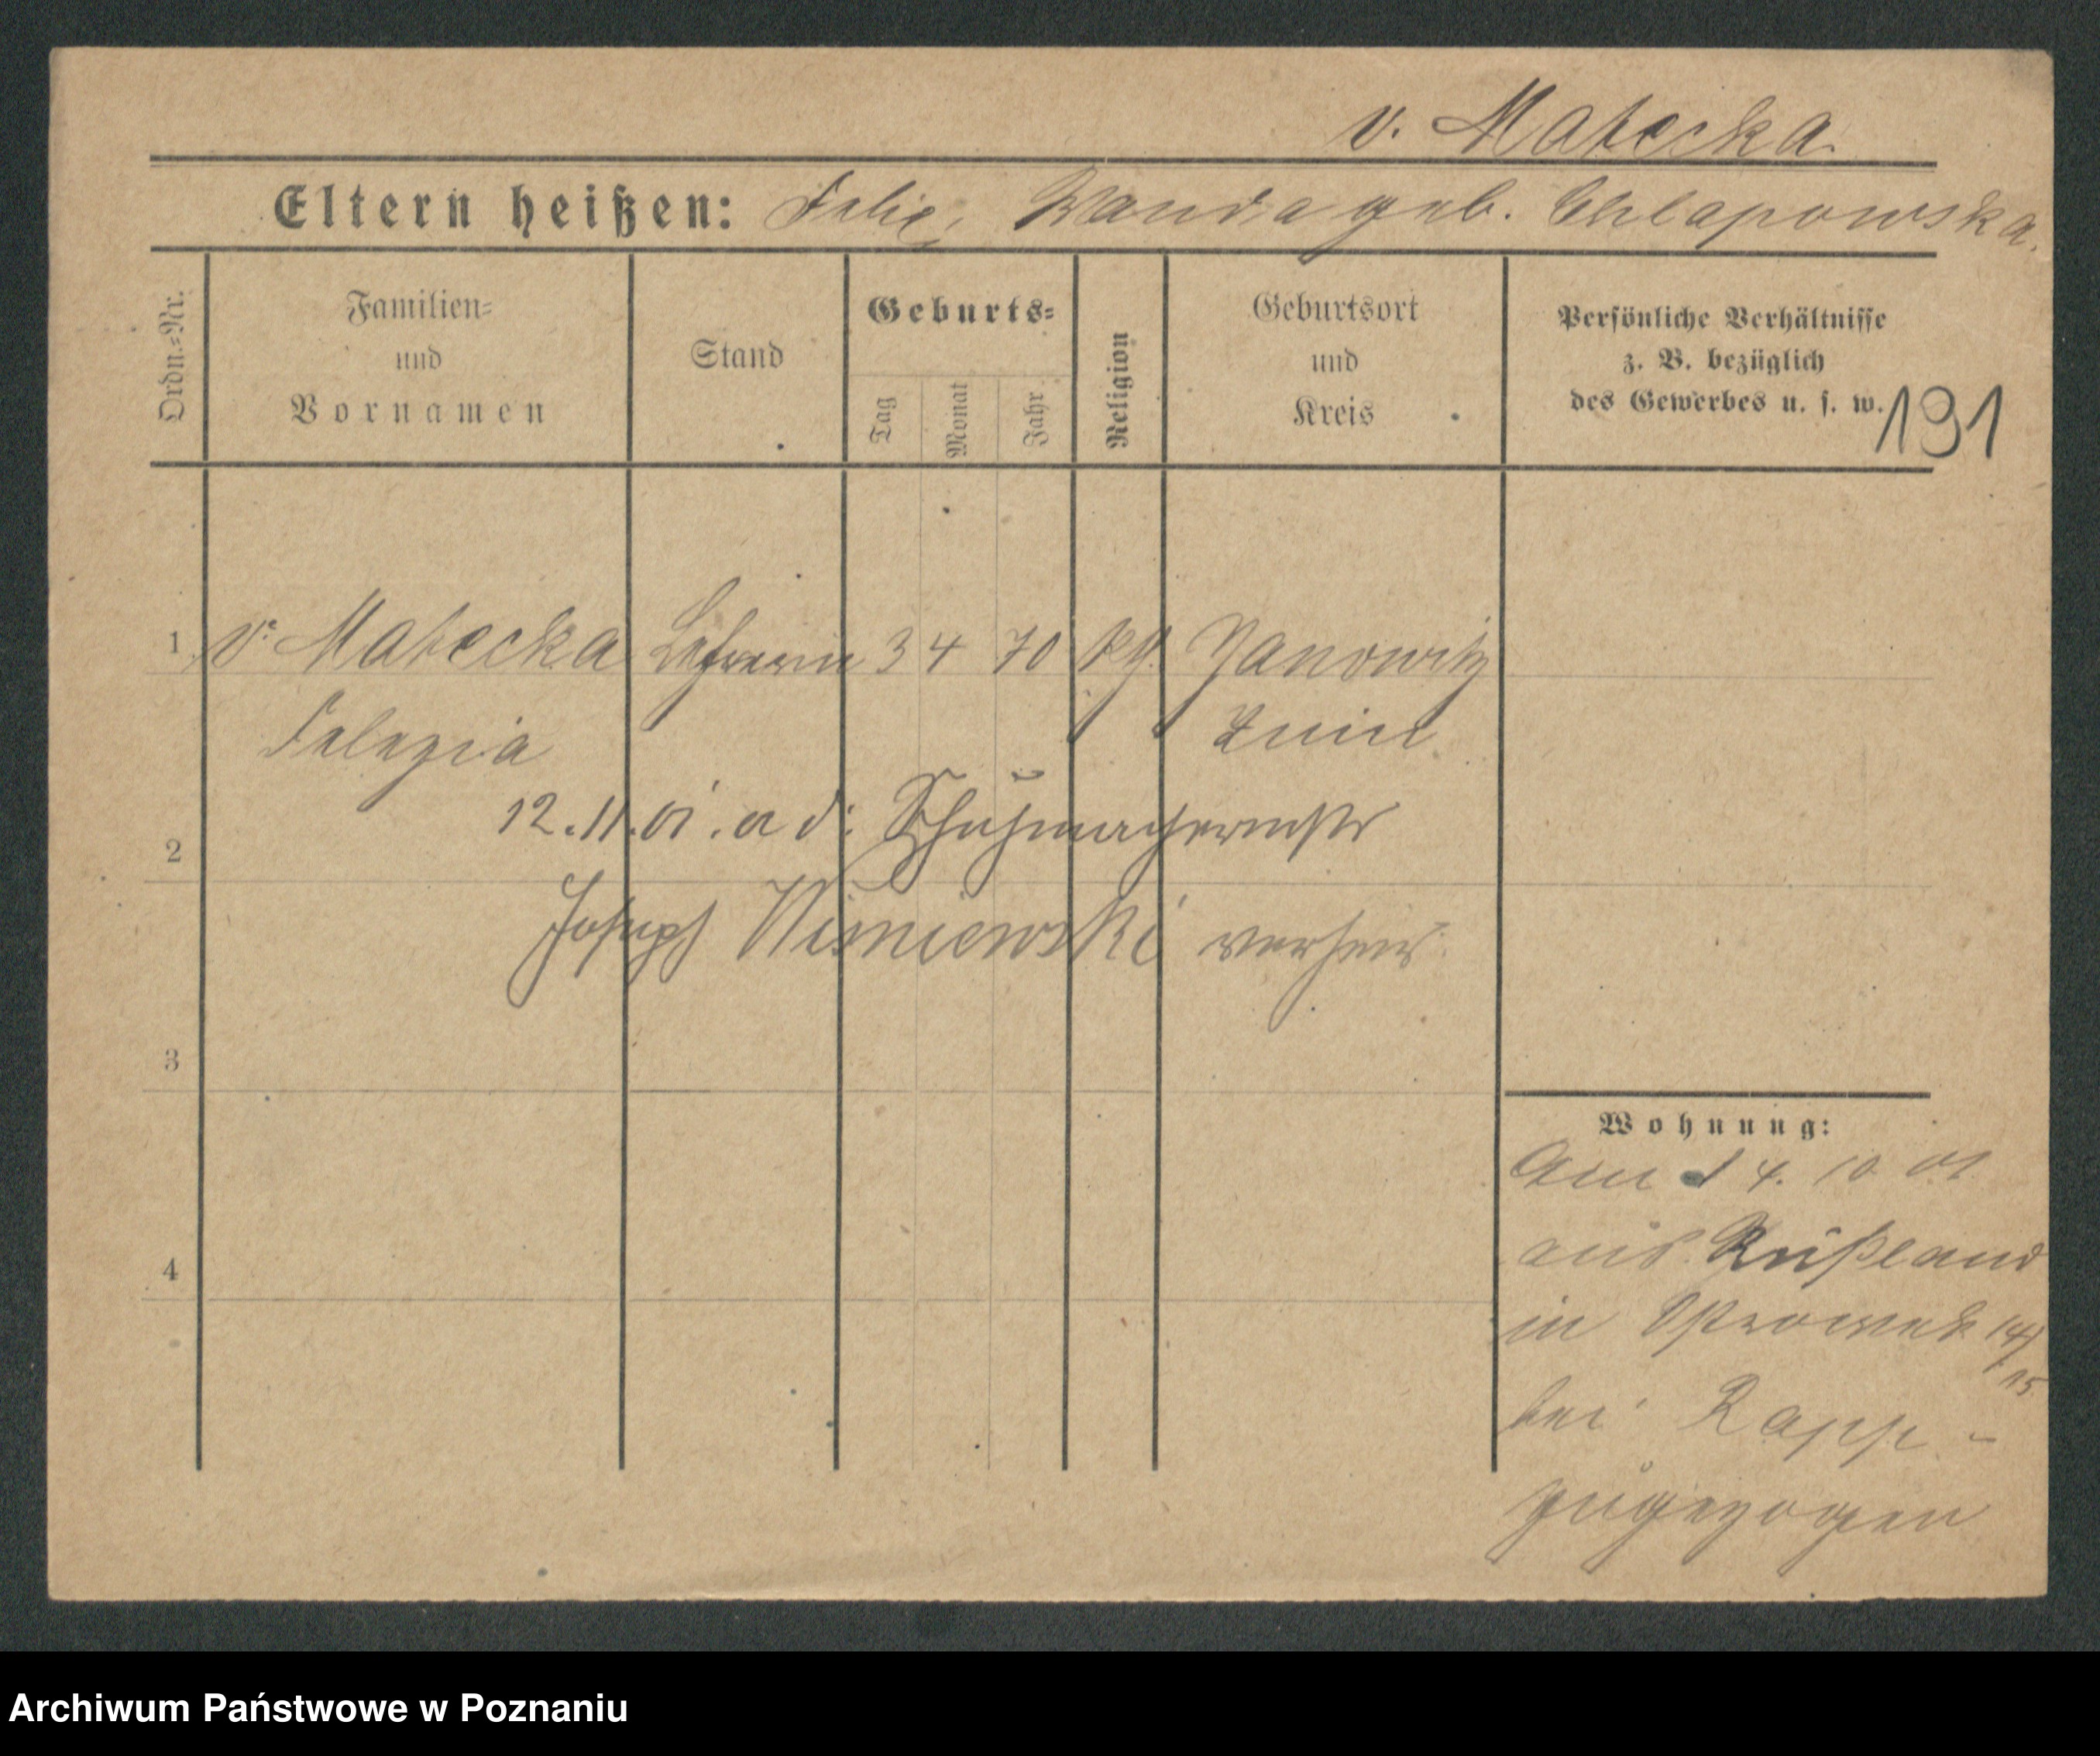 v. Matecka.
Eltern heißen: Felix, Wanda geb. Chlapowska.
Ordn.-Nr.
Familien-
und
Vornamen
Stand
Geburts-
Tag
Monat
Jahr
Religion
Geburtsort
und
Kreis
Persönliche Verhältnisse
z. B. bezüglich
des Gewerbes u. s. w.
191
1 v. Matecka Lehrerin 3 4 70 kth. Janowitz
Znin
12.11.01. a d. Schuhmacher
2
Joseph Wisniewski verheir.
3
Wohnung:
Am 14. 10 01
aus Rußland
4
in Ostrowek 14/15
bei Rapp -
zugezogen
Archiwum Państwowe w Poznaniu